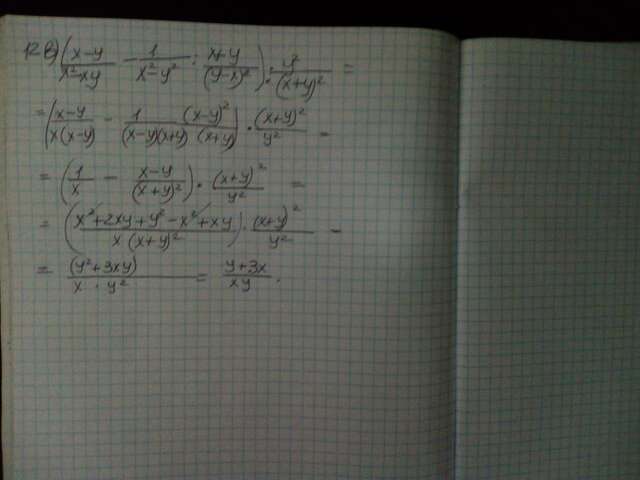 12 в) ((x-y)/(x²-xy) - 1/(x²-y²) : (x+y)/(y-x)²) : y²/(x+y)² =
= ((x-y)/(x(x-y)) - 1/((x-y)(x+y)) (x-y)²/(x+y)) · (x+y)²/y² =
= (1/x - (x-y)/(x+y)²) · (x+y)²/y² =
= ((x²+2xy+y²-x²+xy)/(x(x+y)²)) · (x+y)²/y² =
= (y²+3xy)/(x · y²) = (y+3x)/(xy).